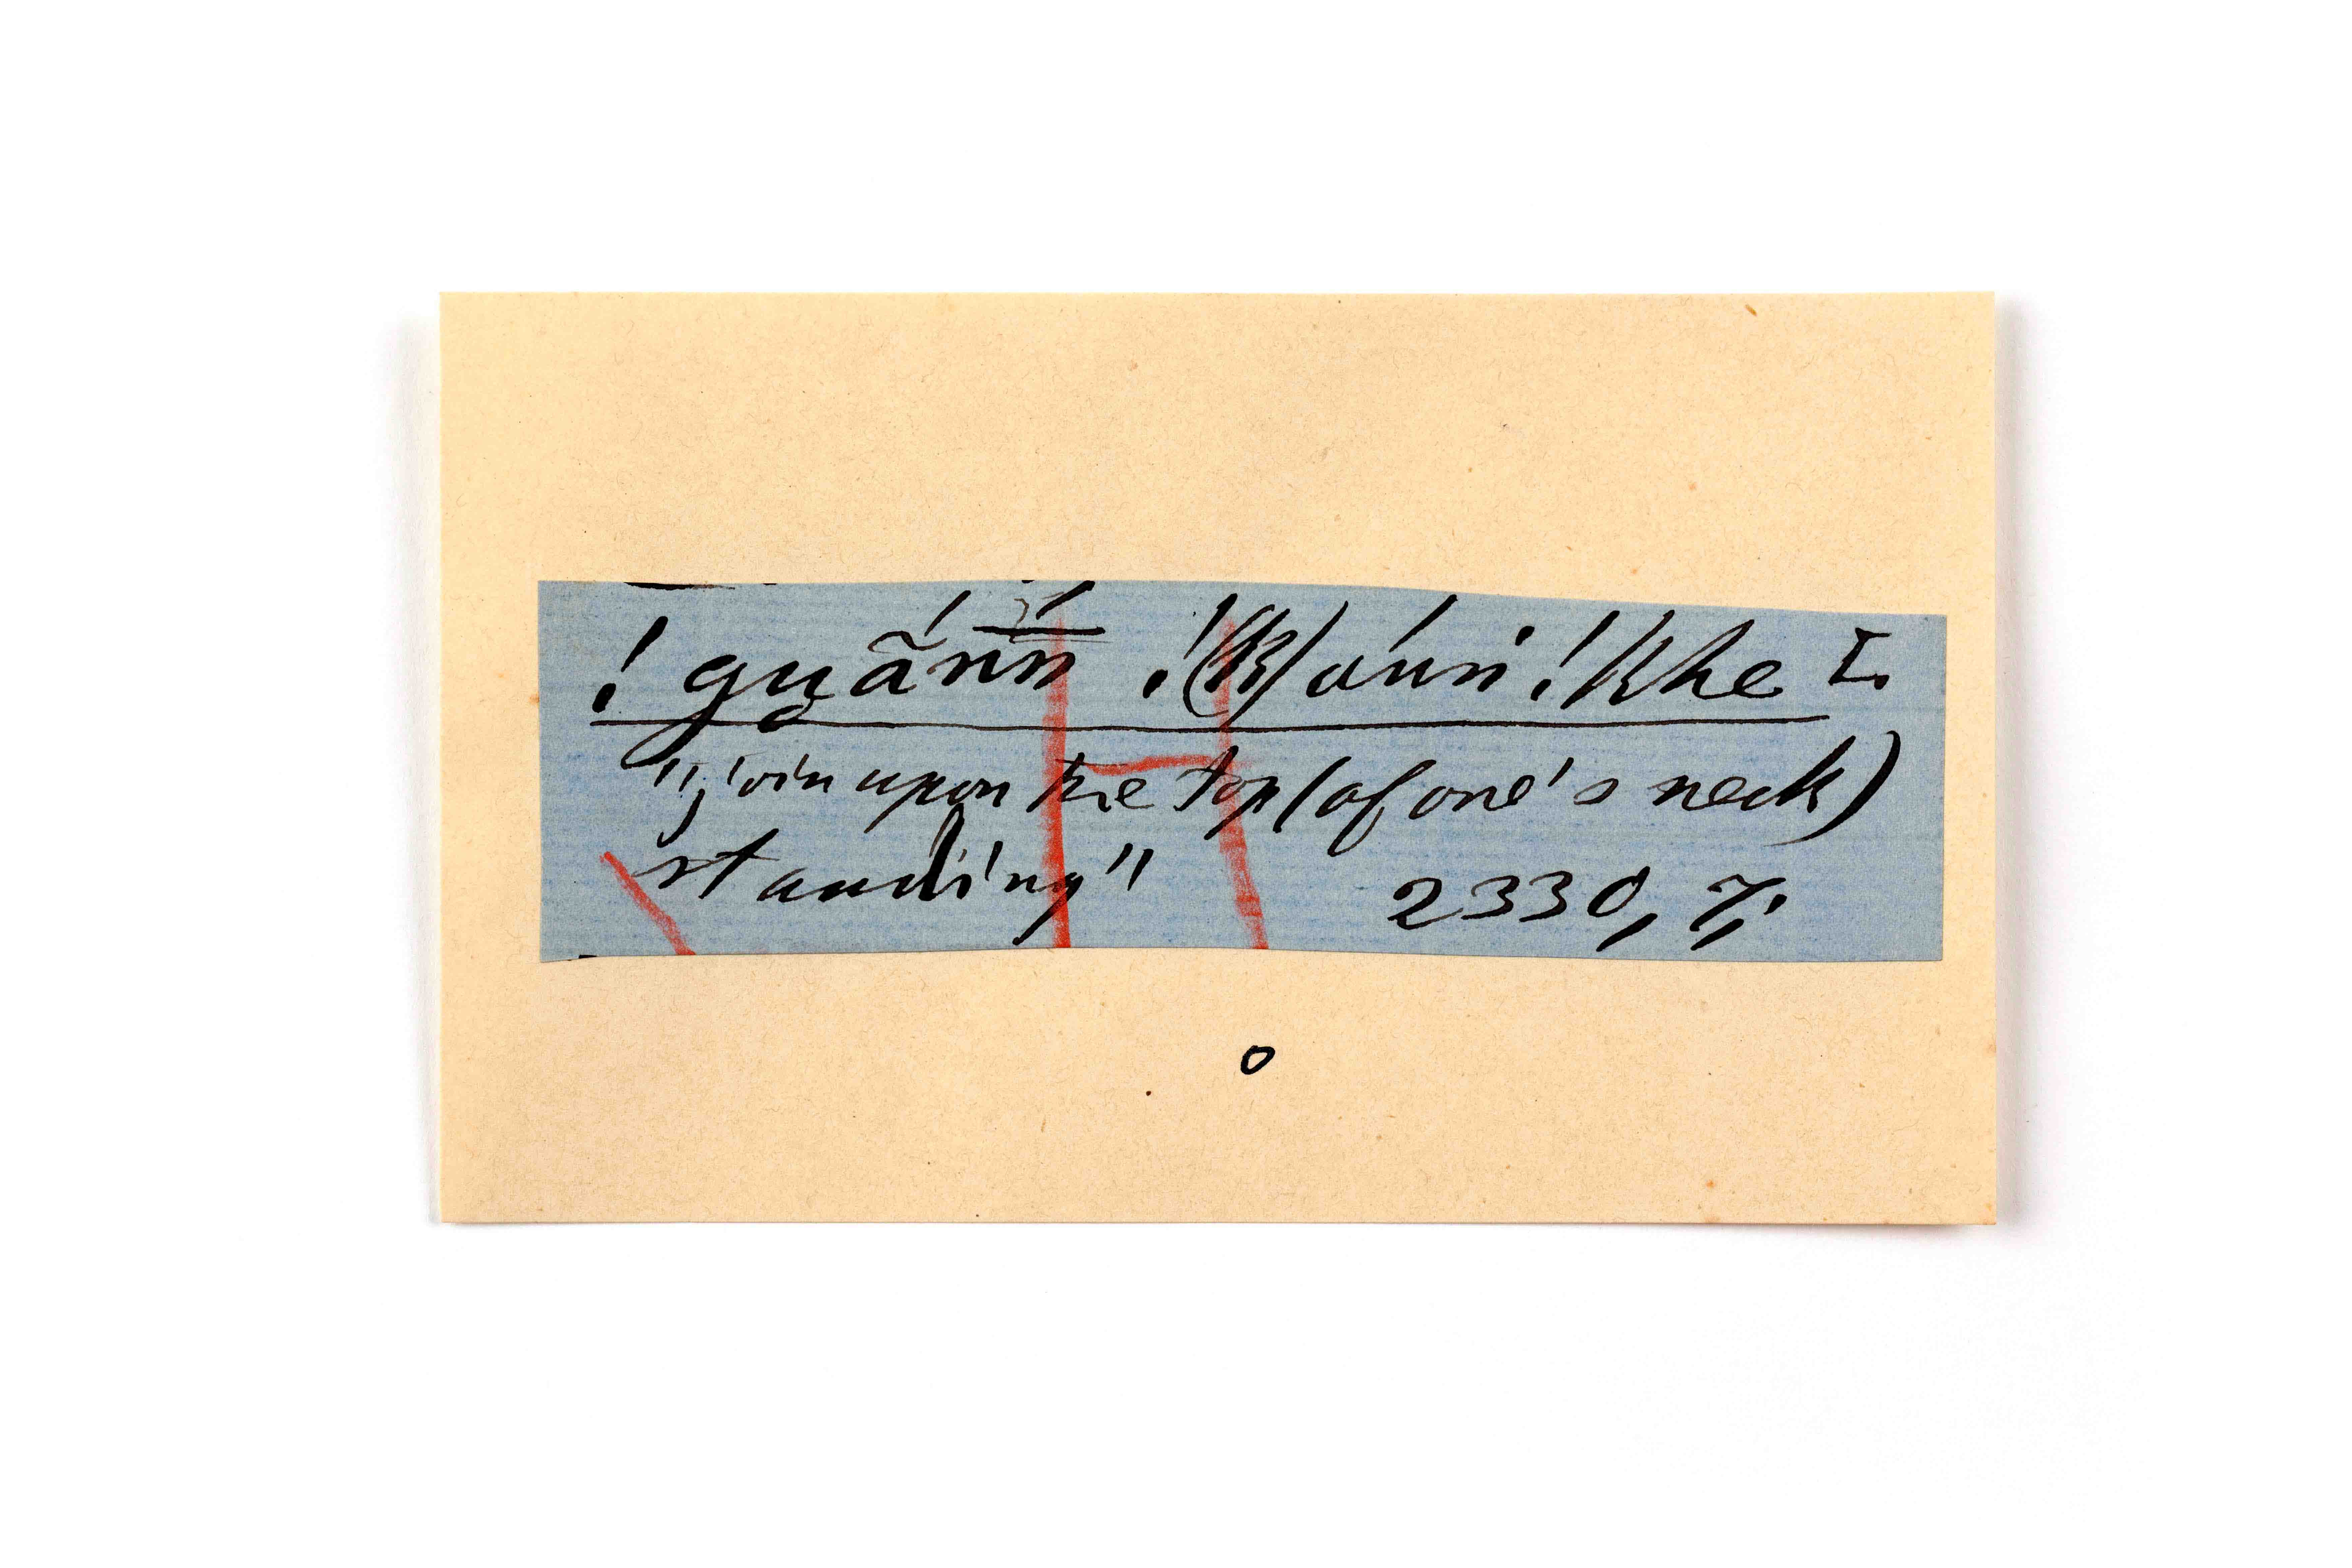 !gu̯ã́nn̄́ !(k)áuń !khe I.
"join upon the top (of one's neck)
standing" 2330, 7;
o